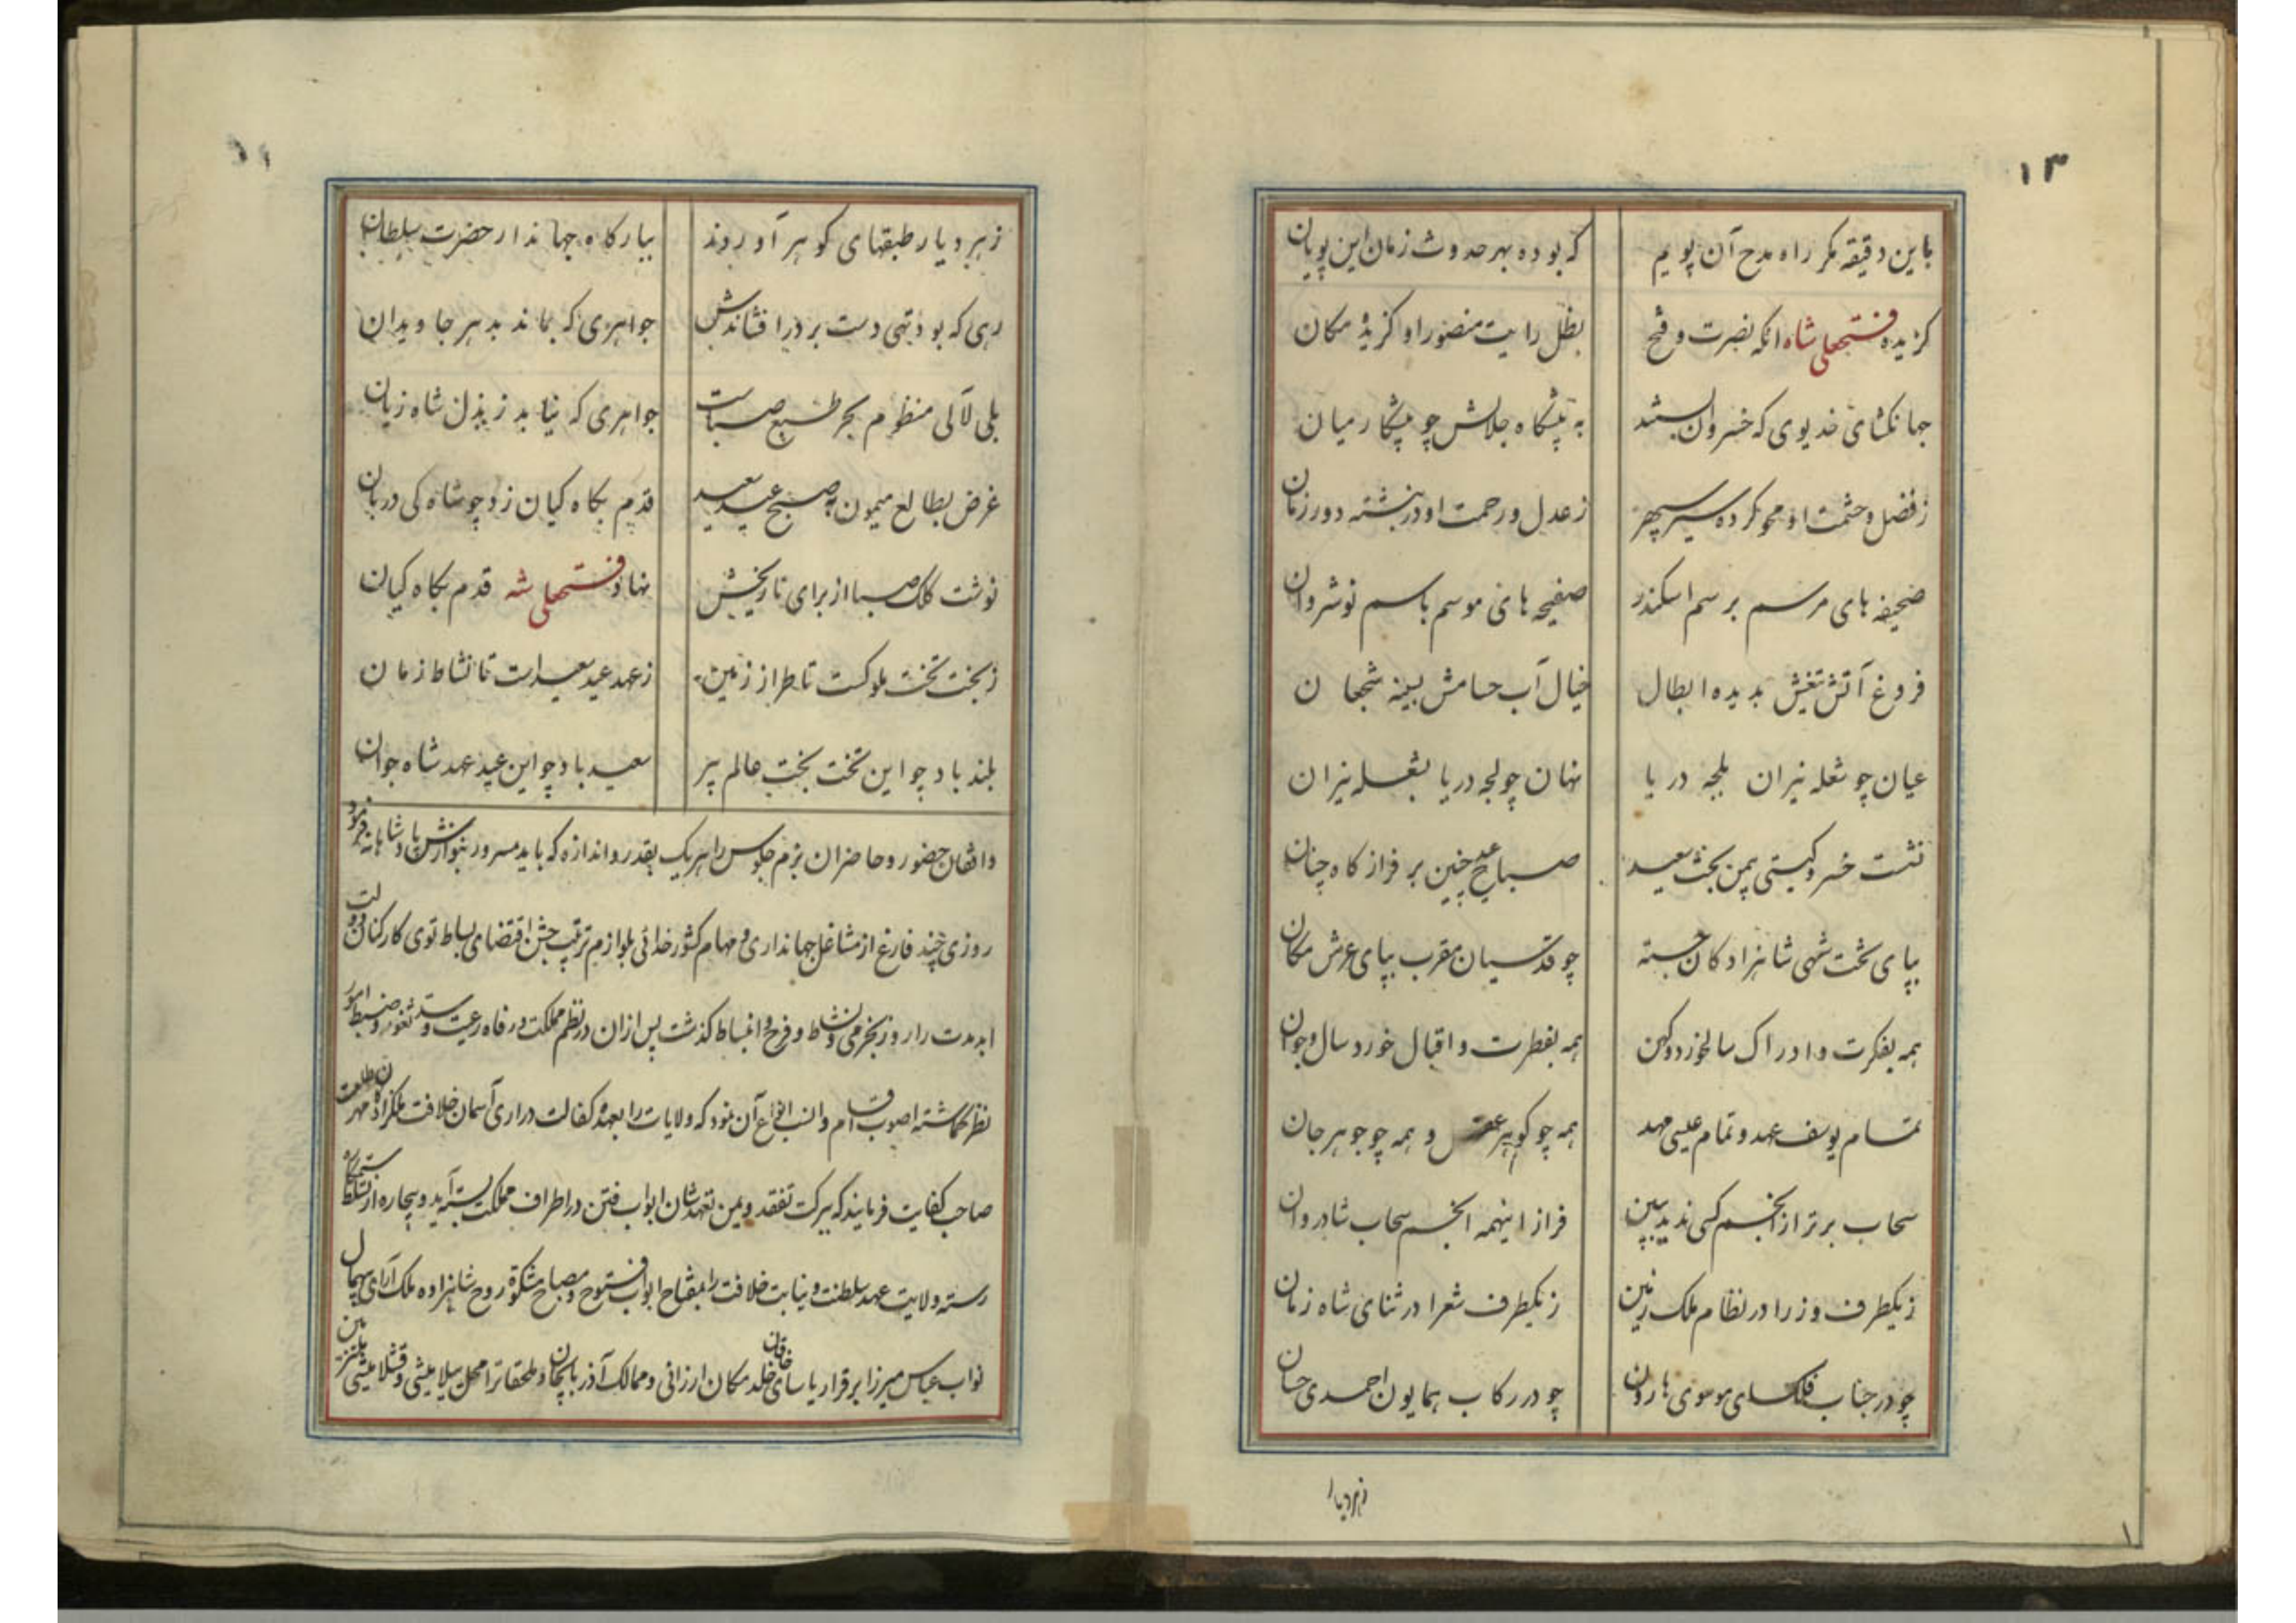 ۱۳
باین دقیقه مگر راه مدح آن پویم که بوده بهر حدوث زمان این پویان
گزیده فتحعلی شاه انکه نصرت و فتح بظل رایت منصور او گزیده مکان
جهانکشای خدیوی که خسروان بستند به پیشگاه جلالش چو پیشکار میان
ز فضل و حشمت او محو کرده سیر سپهر ز عدل و رحمت او در نبشته دور زمان
صحیفه های مرسم برسم اسکندر صفیحه های موسم باسم نوشروان
فروغ آتش تیغش بدیده ابطال خیال آب حسامش بسینه شجعان
عیان چو شعله نیران بلجه دریا نهان چو لجه دریا بشعله نیران
نشست خسرو گیتی بیمن بخت سعید صباح عید چنین بر فراز گاه چنان
بپای تخت شهی شاهزادگان خجسته چو قدسیان مقرب بپای عرش مکان
همه بفکرت و ادراک سالخورد و کهن همه بفطرت و اقبال خورد سال و جوان
تمام یوسف عهد و تمام عیسی مهد همه چو گوهر عقل و همه چو جوهر جان
سحاب برتر از انجم کسی ندید ببین فراز اینهمه انجم سحاب شادروان
ز یکطرف وزرا در نظام ملک زمین ز یکطرف شعرا در ثنای شاه زمان
چو در جناب فلکسای موسوی هارون چو در رکاب همایون احمدی حسان
زهر دیار
زهر دیار طبقهای گوهر آوردند ببارگاه جهاندار حضرت سلطان
رهی که بود تهی دست بر در افشاندش جواهری که بماند بدهر جاویدان
بلی لآلی منظوم بحر طبع صباست جواهری که نیابد ز بذل شاه زیان
غرض بطالع میمون به صبح عید سعید قدم بگاه کیان زد چو شاه کی دربان
نوشت کلک صبا از برای تاریخش نهاد فتحعلی شه قدم بگاه کیان
ز بخت تخت ملوکست تا طراز زمین ز عهد عید سعید است تا نشاط زمان
بلند باد چو این تخت بخت عالم پیر سعید باد چو این عید عهد شاه جوان
واقفان حضور و حاضران بزم جلوس را هر یک بقدر و اندازه که باید مسرور بنوازش پادشاهانه فرمود
روزی چند فارغ از مشاغل جهانداری و مهام کشور خدائی بلوازم ترتیب جشن اقتضای بساط توی کارکنان دولت
ابد مدت را روز بخرمی و نشاط و فرح و انبساط گذشت پس از ان در نظم مملکت و رفاه رعیت و سد ثغور و ضبط امور
نظر گماشته اصوب اقسام و انسب انواع آن نمود که ولایات را بعهده کفالت دراری آسمان خلافت ملکزادکان مهر طلعت
صاحب کفایت فرمایند که ببرکت تفقد و یمن تعهدشان ابواب فتن در اطراف مملکت بسته آید و بیچاره از تسلط ستمکاره
رسته ولایت عهد سلطنت و نیابت خلافت را بمفتاح ابواب فتوح و مصباح مشکوة روح شاهزاده ملک آرای بیهمال
نواب عباس میرزا برقرار یاسای خاقان خلد مکان ارزانی و ممالک آذربایجان و ملحقاتر امحل ییلامیشی و قشلامیشی